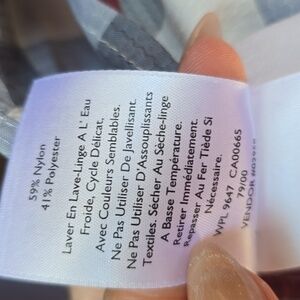 59% Nylon
41% Polyester
Laver En Lave-Linge A L' Eau
Froide, Cycle Délicat.
Avec Couleurs Semblables.
Ne Pas Utiliser De Javellisant.
Ne Pas Utiliser D'Assouplissants
Textiles. Sécher Au Sèche-linge
A Basse Température.
Retirer Immédiatement.
Repasser Au Fer Tiède Si
Nécessaire.
WPL 9647 CA00665
79/00
VENDOR